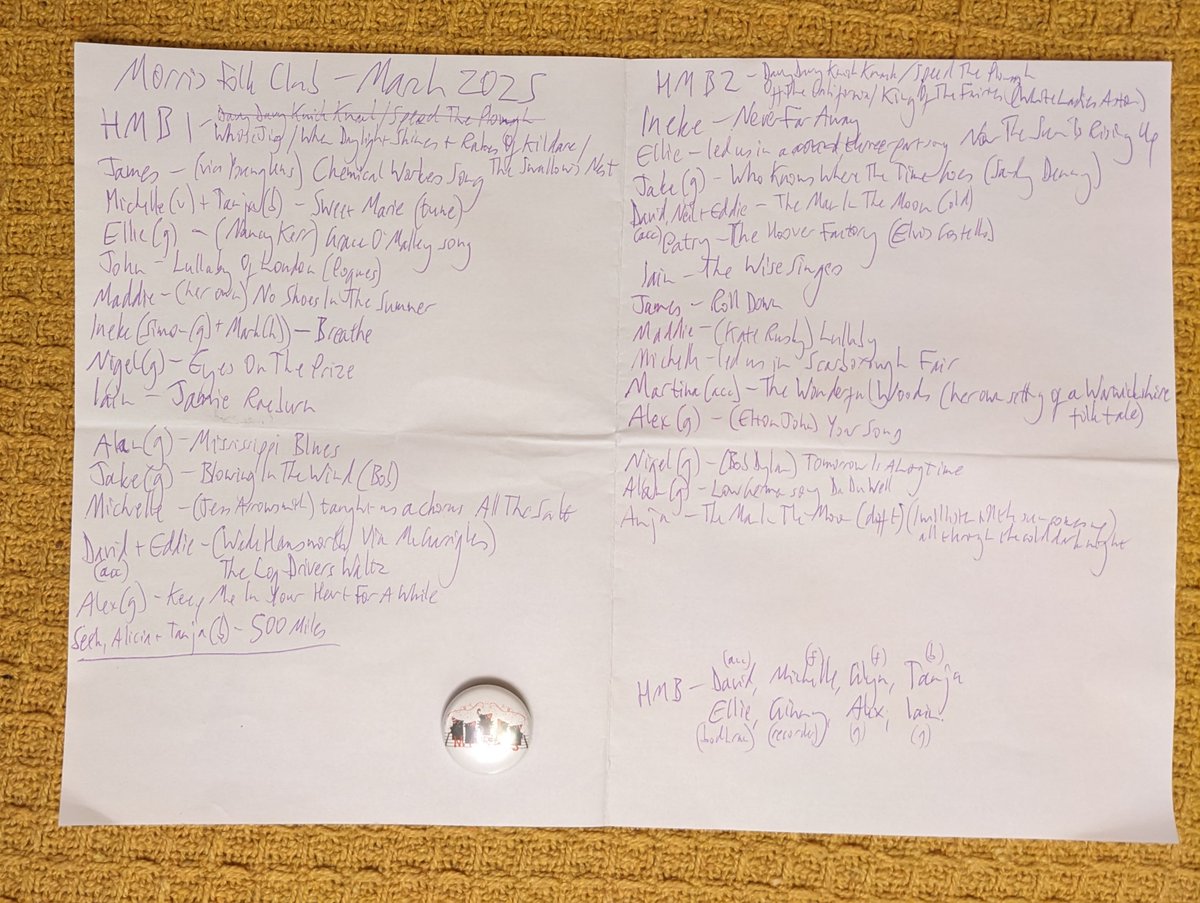 Morris Folk Club - March 2025
HMB 1 - Davy Davy Knick Knack / Speed The Plough
White Jig / When Daylight Shines + Rakes Of Kildare /
The Swallow's Nest
James - (via Young'uns) Chemical Workers Song
Michelle (v) + Tanja (b) - Sweet Marie (tune)
Ellie (g) - (Nancy Kerr) Grace O'Malley song
John - Lullaby Of London (Pogues)
Maddie - (her own) No Shoes In The Summer
Ineke (Simon (g) + Mark (h)) - Breathe
Nigel (g) - Eyes On The Prize
Iain - Jamie Raeburn
Alan (g) - Mississippi Blues
Jake (g) - Blowing In The Wind (Bob)
Michelle - (Jess Arrowsmith) taught us a chorus All The Salt
David + Eddie - (Wade Hemsworth / Via McGarrigles)
(acc) The Log Drivers Waltz
Alex (g) - Keep Me In Your Heart For A While
Seth, Alicia + Tanja (b) - 500 Miles
HMB 2 - Davy Davy Knick Knack / Speed The Plough
Off To California / King Of The Fairies (White Ladies Aston)
Ineke - Never Far Away
Ellie - led us in a round three part song Now The Sun Is Rising Up
Jake (g) - Who Knows Where The Time Goes (Sandy Denny)
David, Neil + Eddie - The Man In The Moon (old)
(acc) Patry - The Hoover Factory (Elvis Costello)
Iain - The Wise Singer
James - Roll Down
Maddie - (Kate Rusby) Lullaby
Michelle - led us in Scarborough Fair
Martina (acc) - The Wonderful Woods (her own setting of a Warwickshire
folk tale)
Alex (g) - (Elton John) Your Song
Nigel (g) - (Bob Dylan) Tomorrow Is A Long Time
Alan (g) - Low German song Dat Du
Anja - The Man In The Moon (diff) (I will
all through the cold dark night
(acc) (f) (f) (b)
HMB - David, Michelle, Glyn, Tanja
Ellie, Ginny, Alex, Iain.
(bodhran) (recorder) (g) (g)